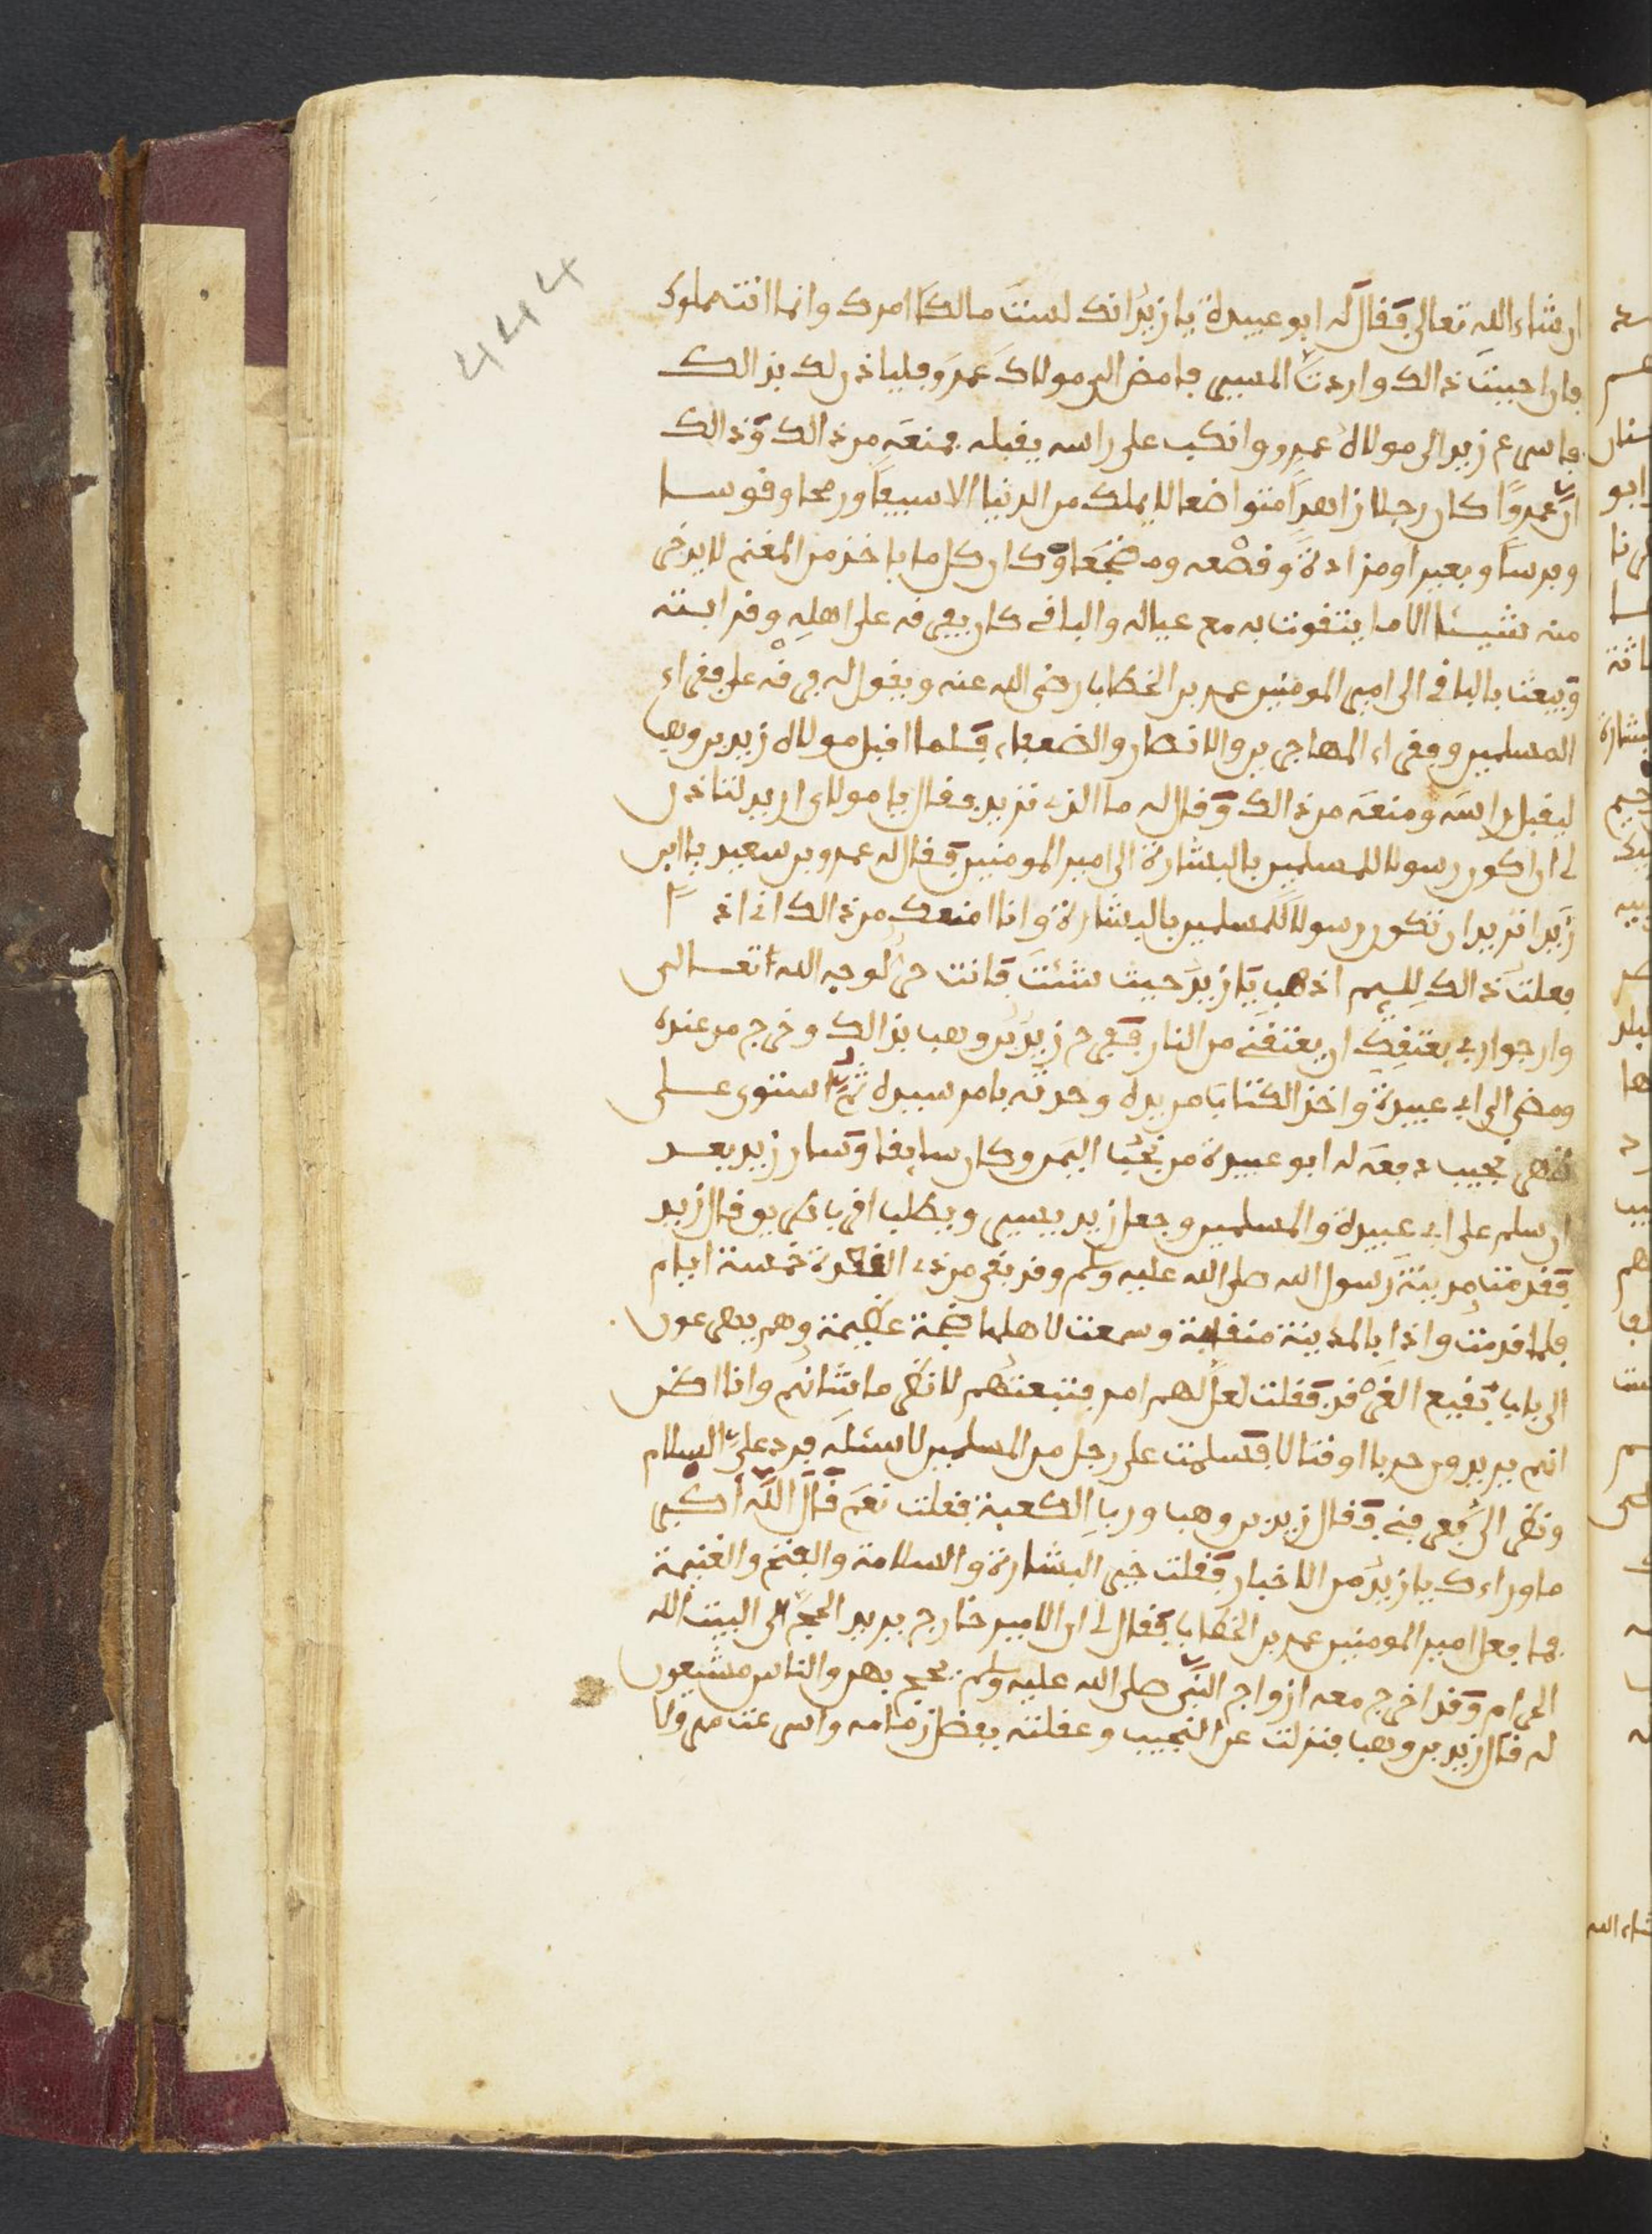 444
ان شاء الله تعالى فقال له ابو عبيدة يا زيد انك لست مالكا امرك وانما انت مملوك
فان احببت ذالك واردت المسير فامض الى مولاك عمرو فلياذن لك بذالك
فاسرع زيد الى مولاه عمرو وانكب على راسه يقبله فمنعه من ذالك وذالك
ان عمروا كان رجلا زاهدا متواضعا لا يملك من الدنيا الا سيفا ورمحا وقوسا
وفرسا وبعيرا ومزادة وقصعه ومضجعا وكان كل ما ياخذ من المغنم لا يدخر
منه شيئا الا ما يتقوت به مع عياله والباقي كان يفرقه على اهله وقرابته
ويبعث بالباقي الى امير المومنين عمر بن الخطاب رضي الله عنه ويقول له فرقه على فقراء
المسلمين وفقراء المهاجرين والانصار والضعفاء فلما اقبل مولاه زيد بن وهب
ليقبل راسه ومنعه من ذالك وقال له ما الذي تريد فقال يا مولاي اريد لتاذن
لي ان اكون رسولا للمسلمين بالبشارة الى امير المومنين فقال له عمرو بن سعيد يا ابن
زيد اتريد ان تكون رسولا للمسلمين بالبشارة وانا امنعك من ذالك اني اذا
فعلت ذالك للئيم اذهب يا زيد حيث شئت فانت حر لوجه الله تعالى
وارجوا ربي بعتقك ان يعتقني من النار ففرح زيد بن وهب بذالك وخرج من عنده
ومضى الى ابي عبيدة واخذ الكتاب من يده وحدثه بامر سيده ثم استوى على
ظهر نجيب دفعه له ابو عبيدة من نجب اليمن وكان سابقا وسار زيد بعد
ان سلم على ابي عبيدة والمسلمين وجعل زيد يسير ويطلب اقرب طريق قال زيد
فقدمت مدينة رسول الله صلى الله عليه وسلم وقد بقي من ذي القعدة خمسة ايام
فلما قدمت واذا بالمدينة منقلبة وسمعت لاهلها ضجة عظيمة وهم يهرعون
الى باب بقيع الغرقد فقلت لعل لهم امر فتبعتهم لانظر ما شانهم وانا اظن
انهم يريدون حربا او قتالا فسلمت على رجل من المسلمين لاسئله فرد علي السلام
ونظر الي فعرفني فقال زيد بن وهب ورب الكعبة فقلت نعم قال الله اكبر
ما وراءك يا زيد من الاخبار فقلت خير البشارة والسلامة والفتح والغنيمة
فما فعل امير المومنين عمر بن الخطاب فقال لي ان الامير خارج يريد الحج الى البيت الله
الحرام وقد اخرج معه ازواج النبي صلى الله عليه وسلم يحج بهن والناس مشيعون
له قال زيد بن وهب فنزلت عن النجيب وعقلته بفضل زمامه واسرعت مهرولا